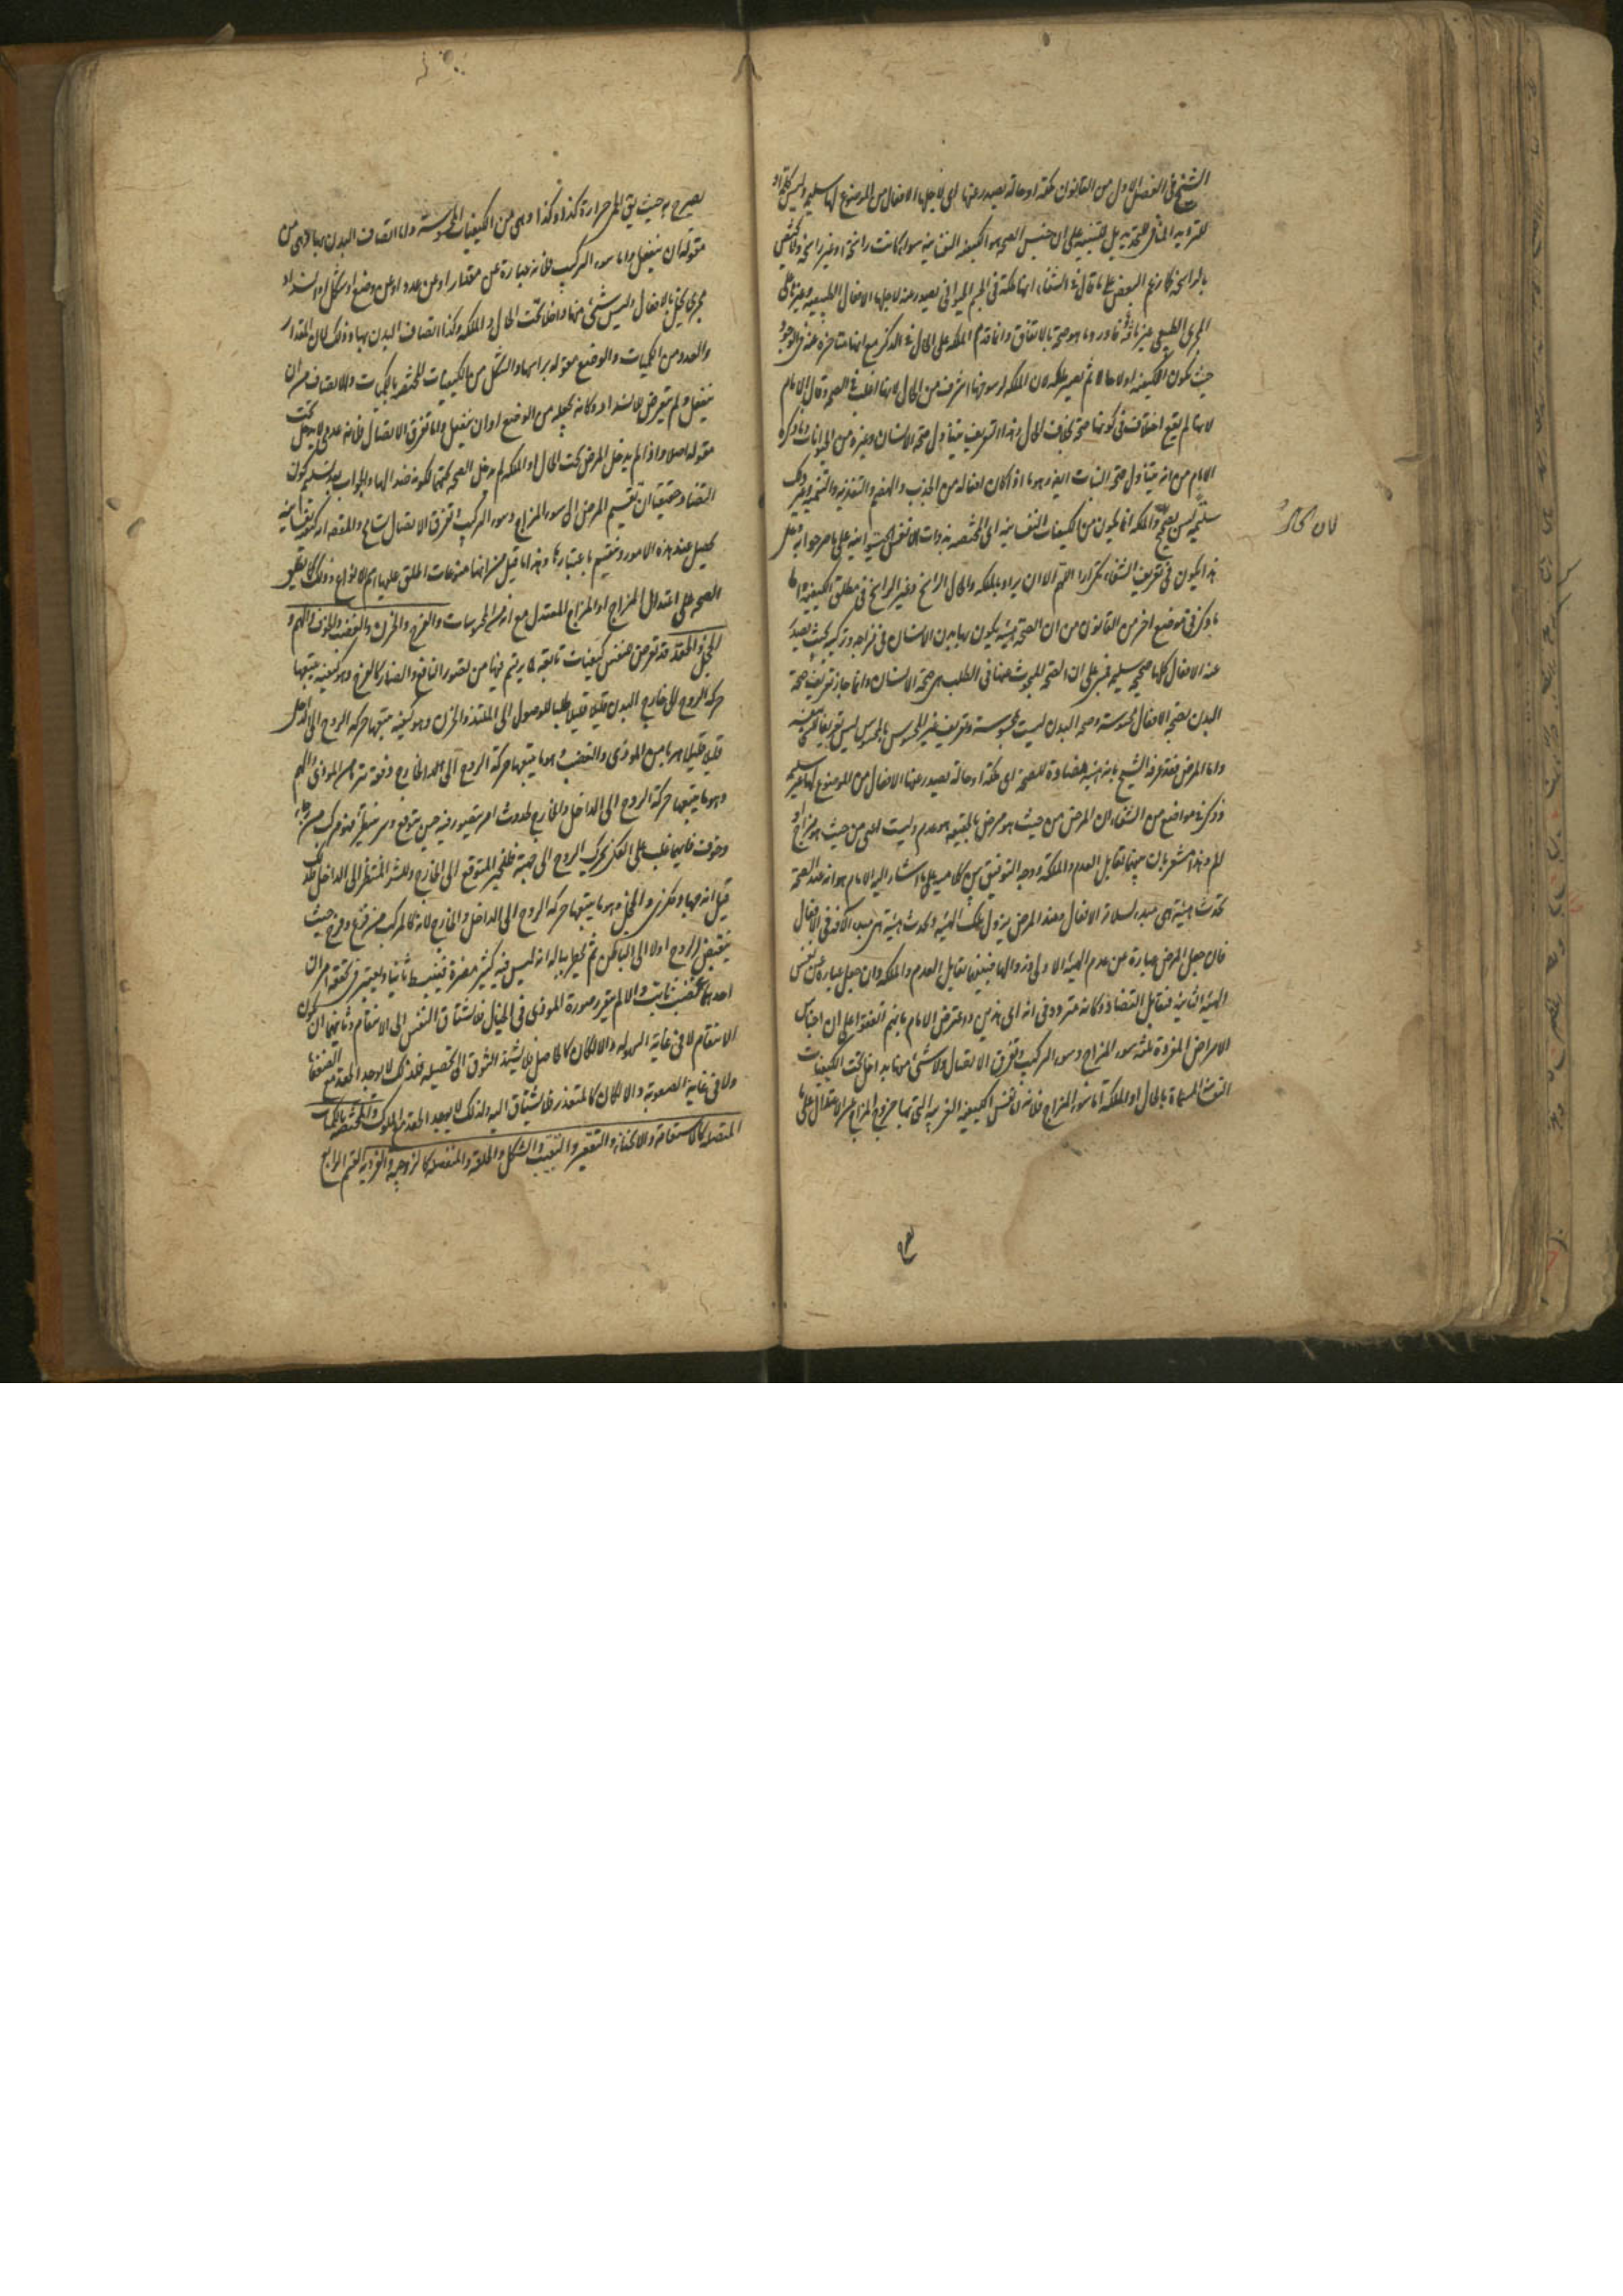 الشيخ في الفصل الاول من القانون ملكة او حالة يصدر عنها اى لاجلها الافعال من الموضوع لها سليمة وليس كلمة او
للترديد المنافي للتحديد بل للتنبيه على ان جنس الصحة هو الكيفية النفسانية سواء كانت راسخة او غير راسخة ولا يختص
بالراسخة كما زعم البعض على ما قال في الشفاء انها ملكة في الجسم الحيواني يصدر عنه لاجلها الافعال الطبيعية وغيرها على
المجرى الطبيعي غير ماوفة وما هو صحة بالاتفاق وانما قدم الملكة على الحال في الذكر مع انها متاخرة عنه في الوجود
حيث تكون الكيفية اولا حالا ثم تصير ملكة لان الملكة لرسوخها اشرف من الحال لانها اغلب في الصحة وقال الامام
لانها لم يقع اختلاف في كونها صحة بخلاف الحال وهذا التعريف يتناول صحة الانسان وغيره من الحيوانات وما ذكره
الامام من انه يتناول صحة النبات ايضا وهو ما اذا كان افعاله من الجذب والهضم والتغذية والتنمية وغير ذلك
سليمة ليس بصحيح والملكة انما يكون من الكيفيات النفسانية اى المختصة بذوات الانفس الحيوانية على ما صرحوا به وعلى
هذا يكون في تعريف الشفاء تكرار اللهم الا ان يراد بالملكة والحال الراسخ وغير الراسخ في مطلق الكيفية واما
ما ذكر في موضع اخر من القانون من ان الصحة هيئة يكون بها بدن الانسان في مزاجه وتركيبه بحيث يصدر
عنه الافعال كلها صحيحة سليمة فمبنى على ان الصحة المبحوث عنها في الطب هي صحة الانسان وانما جاز تعريف صحة
البدن بصحة الافعال محسوسة وصحة البدن ليست بمحسوسة وتعريف غير المحسوس بالمحسوس ليس تعريفا للشئ بنفسه
واما المرض فقد عرفه الشيخ بانه هيئة مضادة للصحة اى ملكة او حالة يصدر عنها الافعال من الموضوع لها غير سليمة
وذكر في مواضع من الشفاء ان المرض من حيث هو مرض بالحقيقة هو عدم وليست اعنى من حيث هو مزاج او
الم وهذا مشعر بان بينهما تقابل العدم والملكة ووجه التوفيق بين كلاميه على ما اشار اليه الامام هو انه عند الصحة
تحدث هيئة هي مبدء لسلامة الافعال وعند المرض يزول تلك الهيئة وتحدث هيئة هي مبدء الافة في الافعال
فان جعل المرض عبارة عن عدم الهيئة الاولى وزوالها فبينهما تقابل العدم والملكة وان جعل عبارة عن نفس
الهيئة الثانية فتقابل التضاد وكانه متردد في انه اى هذين واعترض الامام بانهم اتفقوا على ان اجناس
الامراض المفردة ثلثة سوء المزاج وسوء التركيب وتفرق الاتصال ولا شئ منها بداخل تحت الكيفيات
النفسانية المسماة بالحال او الملكة اما سوء المزاج فلانه نفس الكيفية الغريبة التي بها خروج المزاج عن الاعتدال على ما
يصرح به حيث يق الحمى حرارة كذا وكذا وهي من الكيفيات المحسوسة واما اتصاف البدن بها وهي من
مقولة ان ينفعل واما سوء التركيب فلانه عبارة عن مقدار او عن عدد او عن وضع او شكل او انسداد
مجرى يخل بالافعال وليس شئ منها داخلا تحت الحال والملكة وكذا اتصاف البدن بها وذلك لان المقدار
والعدد من الكميات والوضع مقولة براسها والشكل من الكيفيات المختصة بالكميات والاتصاف من ان
ينفعل ولم يتعرض للانسداد وكانه يجعله من الوضع او ان ينفعل واما تفرق الاتصال فلانه عدمي لا يدخل تحت
مقولة اصلا واذا لم يدخل المرض تحت الحال او الملكة لم يدخل الصحة تحتها لكونه ضدا لها والجواب بعد تسليم كون
التضاد حقيقيا ان تقسيم المرض الى سوء المزاج وسوء التركيب وتفرق الاتصال تسامح والمقصد انه كيفية نفسانية
تحصل عند هذه الامور وتنقسم باعتبارها وهذا ما قيل من انها منوعات اطلق عليها اسم الانواع وذلك كما يطلق
الصحة على اعتدال المزاج او المزاج المعتدل مع انه من المحسوسات والفرح والحزن والغضب والخوف والهم و
الخجل والحقد قد تعرض للنفس كيفيات تابعة لما يرتسم فيها من تصور النافع والضار كالفرح وهو كيفية يتبعها
حركة الروح الى خارج البدن قليلا قليلا طلبا للوصول الى الملتذ والحزن وهو كيفية يتبعها حركة الروح الى الداخل
قليلا قليلا هربا من الموذي والغضب وهو ما يتبعها حركة الروح الى الخارج دفعة من الموذي والهم
وهو ما يتبعها حركة الروح الى الداخل والخارج لحدوث امر يتصور فيه خير يتوقع وشر ينتظر فهو مركب من رجاء
وخوف فايهما غلب على الفكر تحرك الروح الى جهته فللخير المتوقع الى الخارج وللشر المنتظر الى الداخل فلذلك
قيل انه جهاد فكري والخجل وهو ما يتبعها حركة الروح الى الداخل والخارج لانه كالمركب من فزع وفرح حيث
ينقبض الروح اولا الى الباطن ثم يخطر بباله انه ليس فيه كثير مضرة فينبسط ثانيا ويعتبر في تحققه امران
احدهما غضب ثابت والا لم يتقرر صورة الموذي في الخيال فلا يشتاق النفس الى الانتقام وثانيهما ان يكون
الانتقام لا في غاية السهولة والا لكان كالحاصل فلا يشتد الشوق الى تحصيله فلذلك لا يوجد الحقد مع الضعفاء
ولا في غاية الصعوبة والا لكان كالمتعذر فلا يشتاق اليه ولذلك لا يوجد الحقد مع الملوك والمختصة بالكميات
المتصلة كالاستقامة والانحناء والتقعير والتقبيب والشكل والخلقة والمنفصلة كالزوجية والفردية القسم الرابع